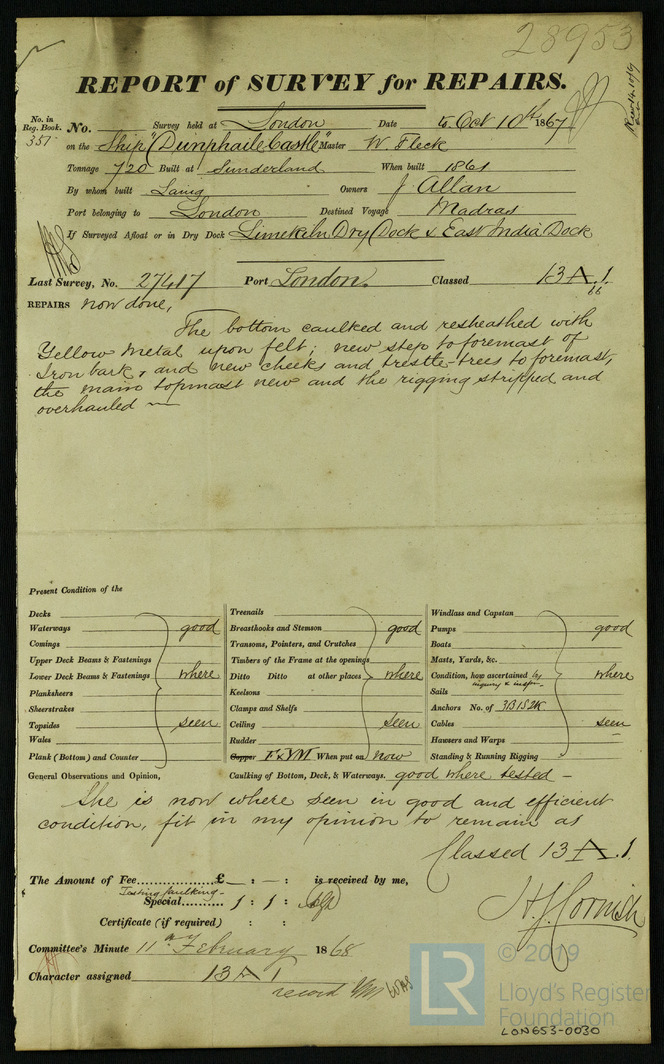 28953
REPORT of SURVEY for REPAIRS.
No. in Reg. Book. 357 No. Survey held at London Date to Oct 10th 1867
on the Ship "Dunphaile Castle" Master W. Fleck
Tonnage 720 Built at Sunderland When built 1861
By whom built Laing Owners J Allan
Port belonging to London Destined Voyage Madras
If Surveyed Afloat or in Dry Dock Limekiln Dry Dock & East India Dock
Last Survey, No. 27417 Port London. Classed 13 A.1.
66
REPAIRS now done,
The bottom caulked and resheathed with
Yellow Metal upon felt; new step to foremast of
Iron bark, and new cheeks and trestle-trees to foremast,
the main topmast new and the rigging stripped and
overhauled —
Present Condition of the
Decks Treenails Windlass and Capstan
Waterways good Breasthooks and Stemson good Pumps good
Comings Transoms, Pointers, and Crutches Boats
Upper Deck Beams & Fastenings Timbers of the Frame at the openings Masts, Yards, &c.
Lower Deck Beams & Fastenings where Ditto Ditto at other places where Condition, how ascertained by where
inquiry & inspn.
Planksheers Keelsons Sails
Sheerstrakes Clamps and Shelfs Anchors No. of 3B1S2K
Topsides seen Ceiling seen Cables seen
Wales Rudder Hawsers and Warps
Plank (Bottom) and Counter Copper F&YM When put on now Standing & Running Rigging
General Observations and Opinion, Caulking of Bottom, Deck, & Waterways. good where tested -
She is now where seen in good and efficient
condition, fit in my opinion to remain as
Classed 13 A.1.
The Amount of Fee £ : - : is received by me,
Testing Caulking -
Special 1 : 1 :
H J Cornish
Certificate (if required) : :
Committee's Minute 11th February 1868
Character assigned 13 A 1
record
LR
© 2019
Lloyd's Register
Foundation
LON653-0030